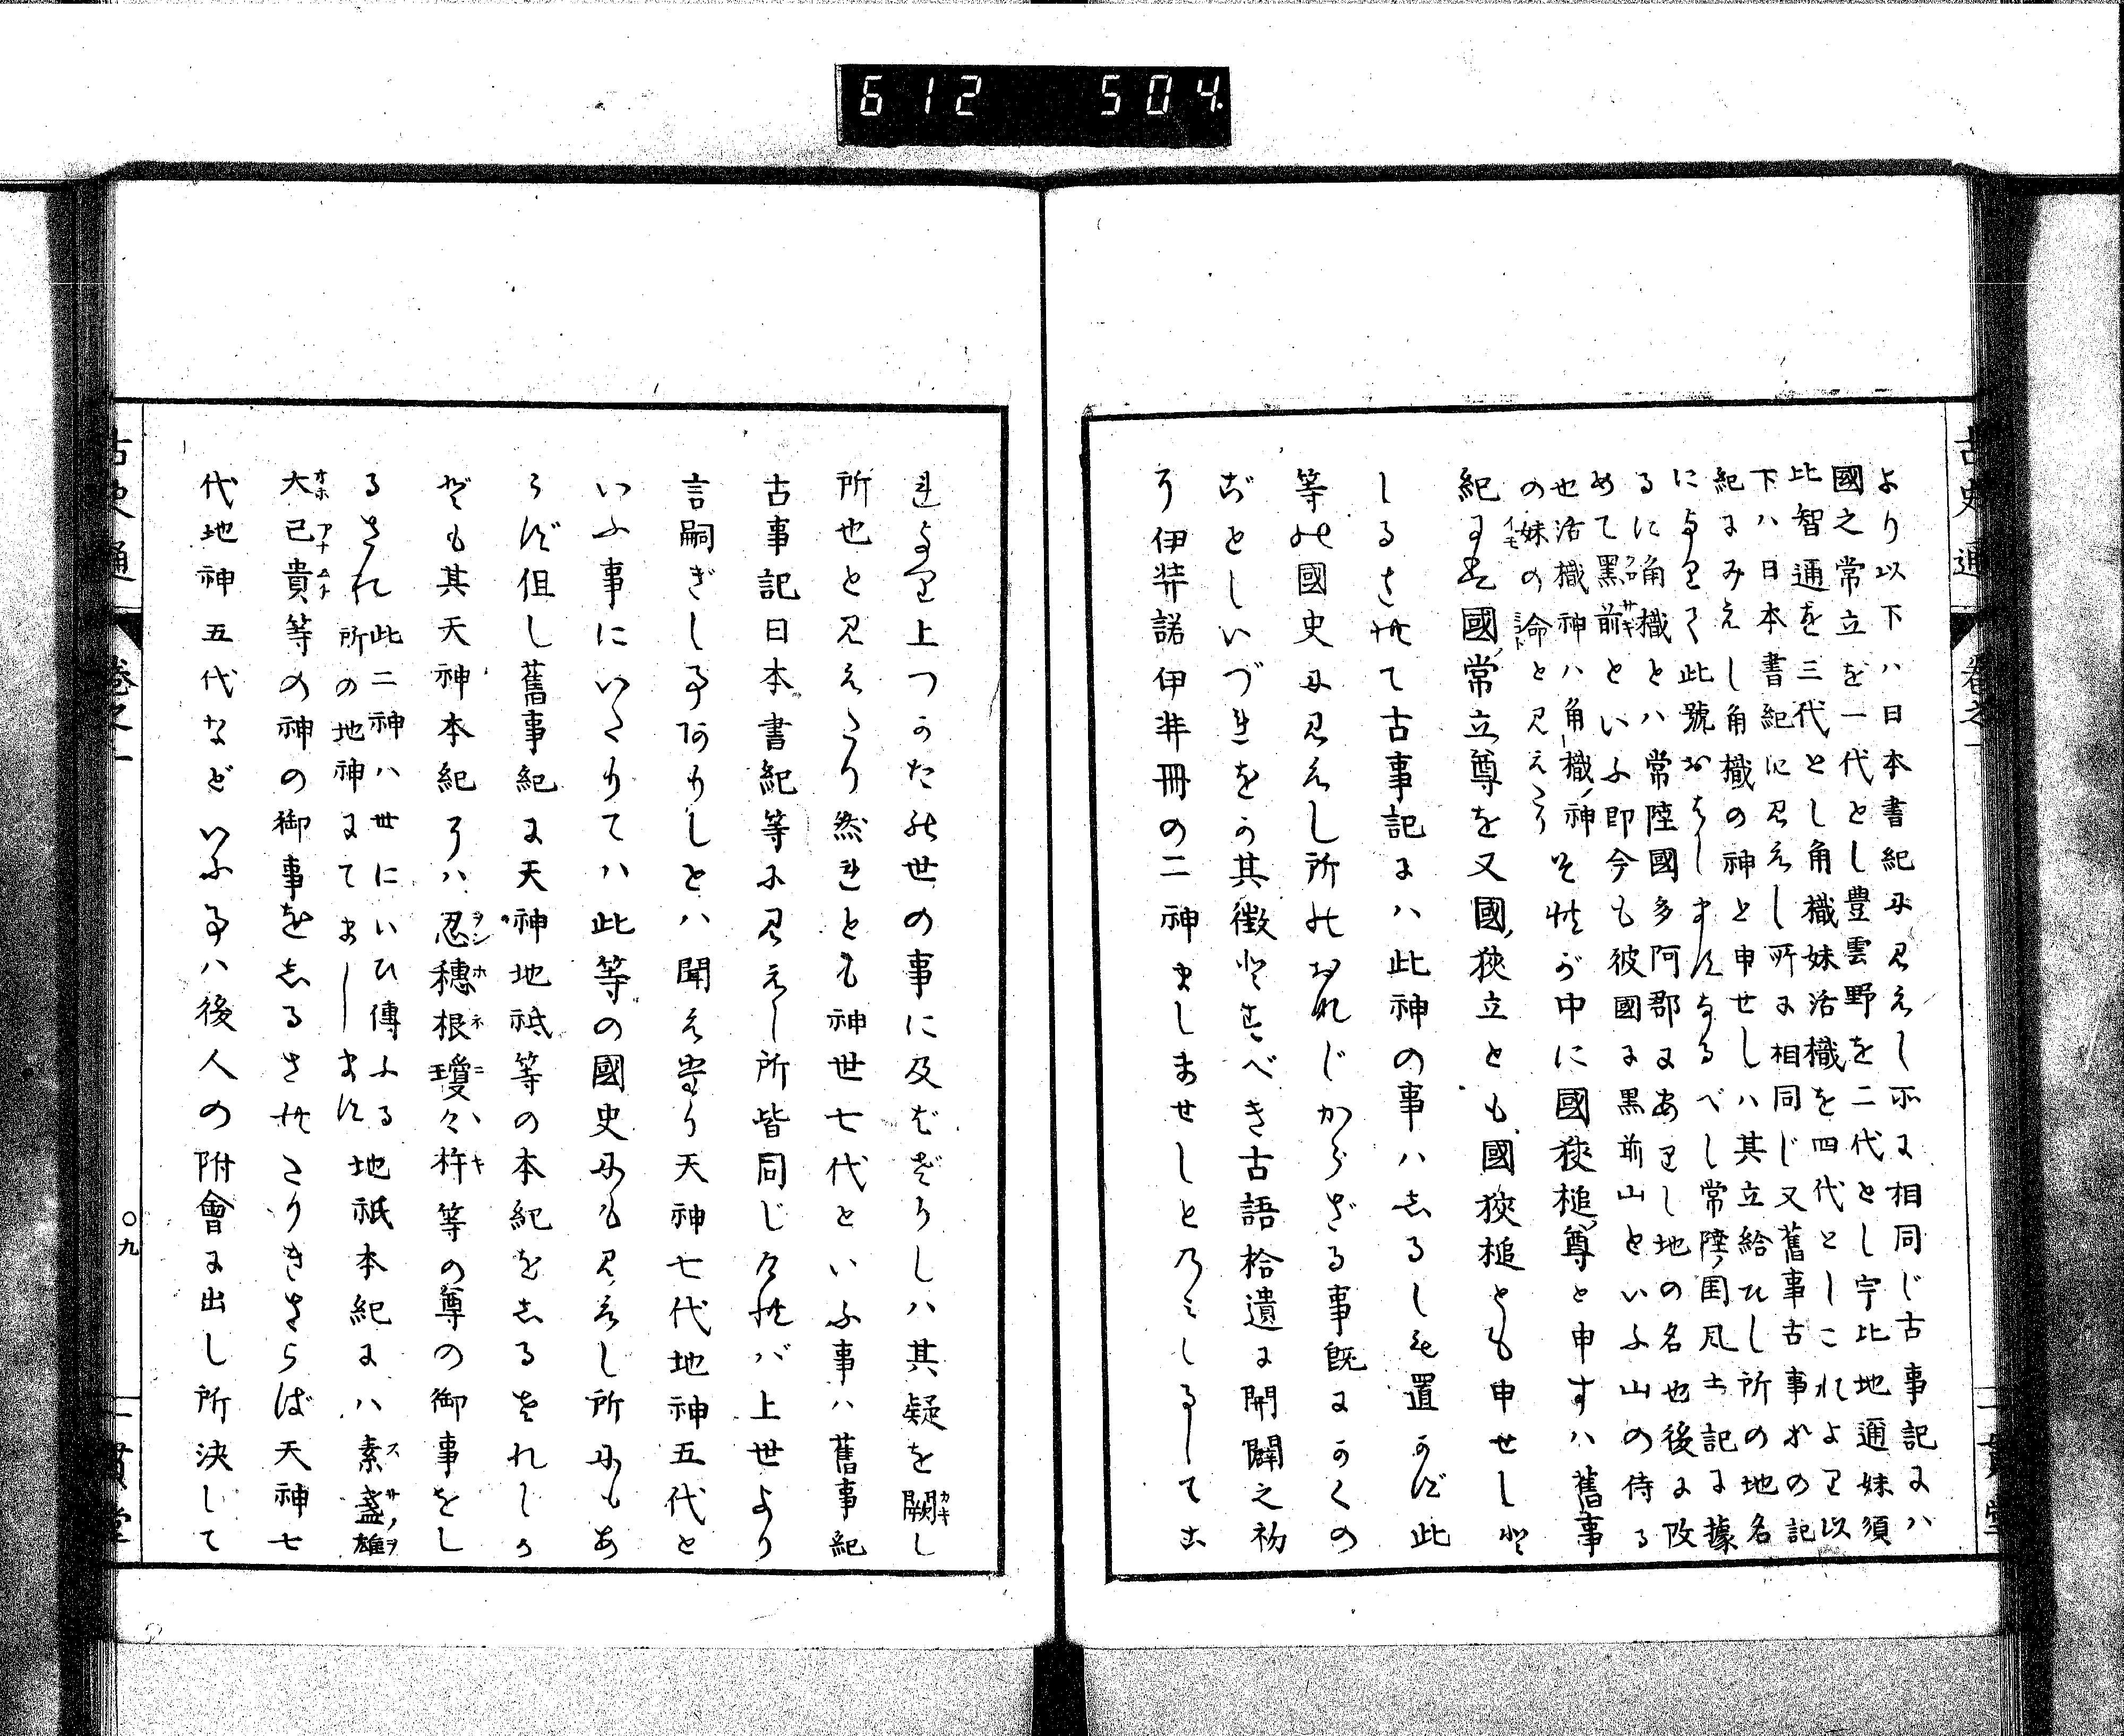 612 504
古史通 卷之一 一貫堂
より以下ハ日本書紀に見えし所に相同じ古事記にハ
國之常立を一代とし豊雲野を二代とし宇比地邇妹須
比智邇を三代とし角樴妹活樴を四代としこれより以
下ハ日本書紀に見えし所に相同じ又舊事古事等の記
紀にみえし角樴の神と申せしハ其立給ひし所の地名
により て此號おはしますなるべし常陸ノ国風土記に據
るに角樴とハ常陸國多阿郡にありし地の名也後に改
めて黒前といふ即今も彼國に黒前山といふ山の侍る
也活樴神ハ角樴ノ神
の妹の命と見えたり
それが中に國狹槌ノ尊と申すハ舊事
紀には國ノ常立尊を又國ノ狹立とも國狹槌とも申せしと
しるされて古事記にハ此神の事ハしるしも置かず此
等の國史に見えし所のおなじからざる事既にかくの
ごとしいづれをか其徴とすべき古語拾遺に開闢之初
に伊弉諾伊弉冊の二神ましませしとのミしるしてこ
れより上つかたの世の事に及ばざりしハ其疑を闕し
所也と見えたり然れとも神世七代といふ事ハ舊事紀
古事記日本書紀等に見えし所皆同じければ上世より
言嗣ぎし事ありしとハ聞え侍り天神七代地神五代と
いふ事にいたりてハ此等の國史にも見えし所にもあ
らず但し舊事紀に天神地祇等の本紀をしるされしか
ども其天神本紀にハ忍穂根瓊々杵等の尊の御事をし
るされ此二神ハ世にいひ傳ふる
所の地神にてましします
地祇本紀にハ素盞雄
大己貴等の神の御事をしるされたりきさらば天神七
代地神五代などいふ事ハ後人の附會に出し所決して
古史通 卷之一 〇九 一貫堂